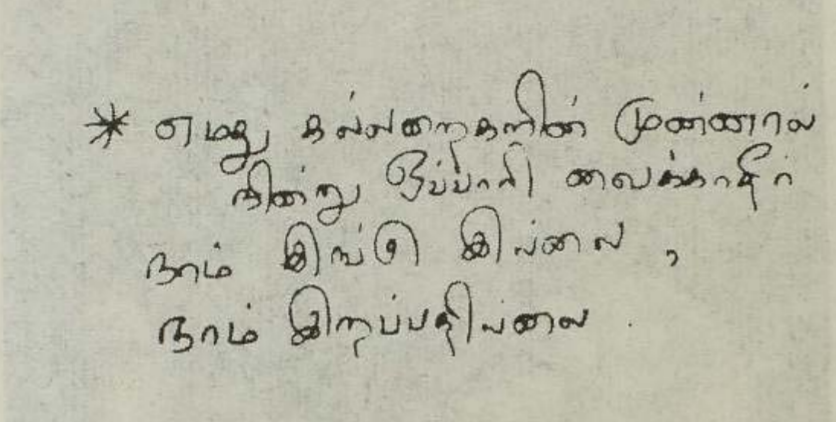 * எமது கல்லறைகளின் முன்னால்
நின்று ஒப்பாரி வைக்காதீர்
நாம் இங்கு இல்லை ,
நாம் இறப்பதில்லை .